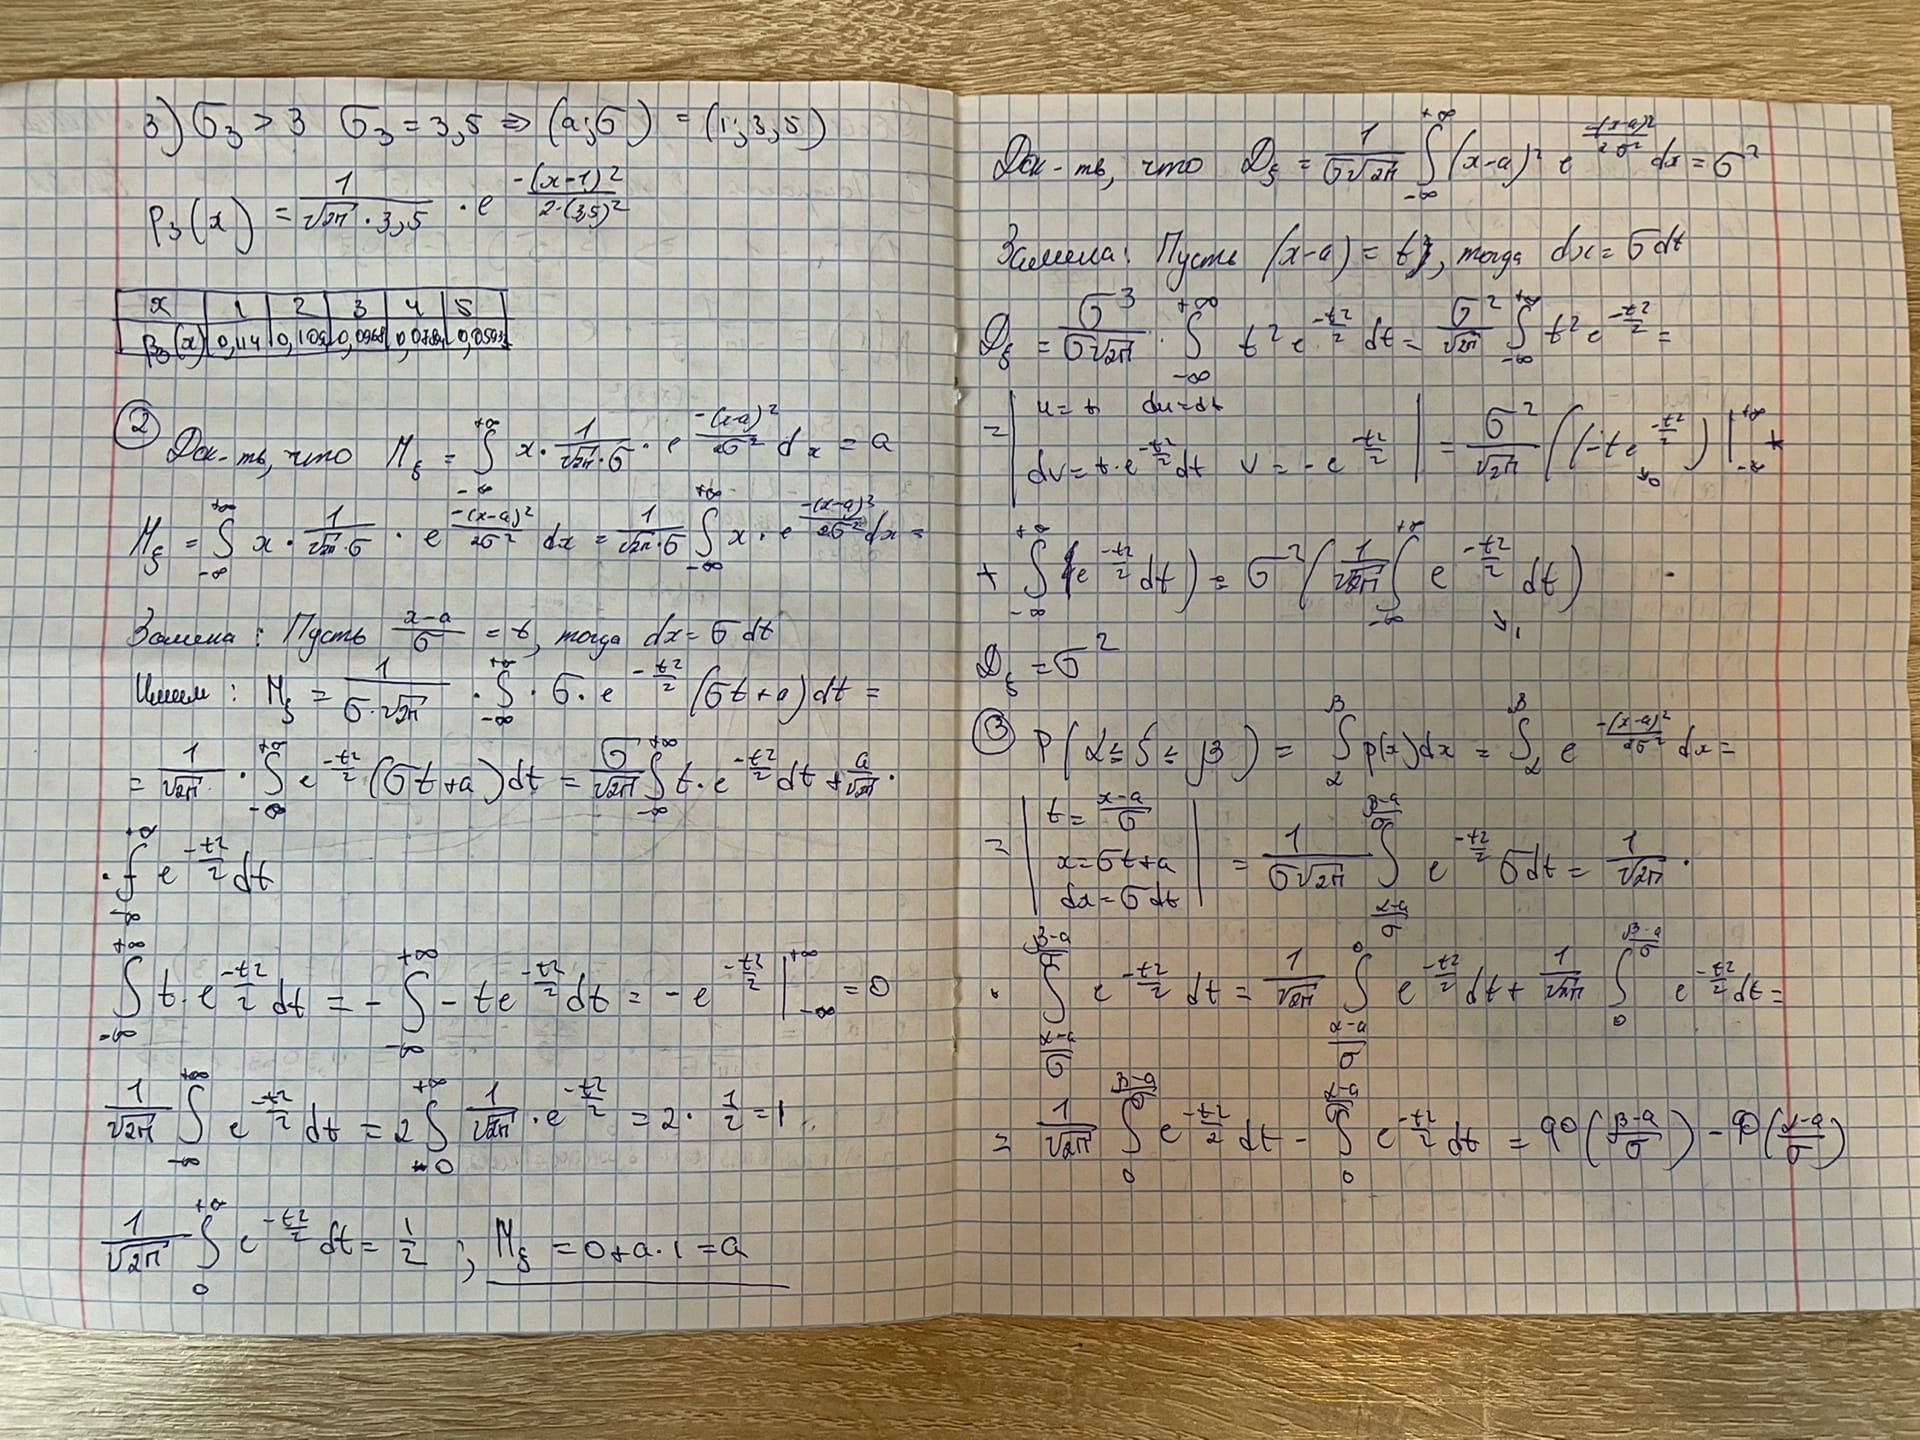 3) σ₃ > 3 σ₃ = 3,5 ⇒ (a; σ) = (1; 3,5)
p₃(x) = 1/(√2π · 3,5) · e^(-(x-1)²/(2·(3,5)²))
x 1 2 3 4 5
p₃(x) 0,114 0,109 0,0968
② Док-ть, что M_ξ = ∫_{-∞}^{+∞} x · 1/(√2π · σ) · e^(-(x-a)²/2σ²) dx = a
M_ξ = ∫_{-∞}^{+∞} x · 1/(√2π · σ) · e^(-(x-a)²/2σ²) dx = 1/(√2π · σ) ∫_{-∞}^{+∞} x · e^(-(x-a)²/2σ²) dx =
Замена: Пусть (x-a)/σ = t, тогда dx = σ dt
Имеем: M_ξ = 1/(σ · √2π) · ∫_{-∞}^{+∞} · σ · e^(-t²/2) (σt + a) dt =
= 1/√2π · ∫_{-∞}^{+∞} e^(-t²/2) (σt + a) dt = σ/√2π ∫_{-∞}^{+∞} t · e^(-t²/2) dt + a/√2π ·
· ∫_{-∞}^{+∞} e^(-t²/2) dt
∫_{-∞}^{+∞} t · e^(-t²/2) dt = - ∫_{-∞}^{+∞} - t e^(-t²/2) dt = - e^(-t²/2) |_{-∞}^{+∞} = 0
1/√2π ∫_{-∞}^{+∞} e^(-t²/2) dt = 2 ∫_{0}^{+∞} 1/√2π · e^(-t²/2) = 2 · 1/2 = 1
1/√2π ∫_{0}^{+∞} e^(-t²/2) dt = 1/2 ; M_ξ = 0 + a · 1 = a
Док-ть, что D_ξ = 1/(σ√2π) ∫_{-∞}^{+∞} (x-a)² e^(-(x-a)²/2σ²) dx = σ²
Замена: Пусть (x-a) = t, тогда dx = σ dt
D_ξ = σ³/(σ√2π) · ∫_{-∞}^{+∞} t² e^(-t²/2) dt = σ²/√2π ∫_{-∞}^{+∞} t² e^(-t²/2) =
= | u = t du = dt
dv = t · e^(-t²/2) dt v = - e^(-t²/2) | = σ²/√2π ((-t e^(-t²/2)) |_{-∞}^{+∞} +
↘0
+ ∫_{-∞}^{+∞} e^(-t²/2) dt) = σ² (1/√2π ∫_{-∞}^{+∞} e^(-t²/2) dt)
↘1
D_ξ = σ²
③ P(α ≤ ξ ≤ β) = ∫_{α}^{β} p(x) dx = ∫_{α}^{β} e^(-(x-a)²/2σ²) dx =
= | t = (x-a)/σ
x = σt + a
dx = σ dt | = 1/(σ√2π) ∫_{(α-a)/σ}^{(β-a)/σ} e^(-t²/2) σ dt = 1/√2π ·
· ∫_{(α-a)/σ}^{(β-a)/σ} e^(-t²/2) dt = 1/√2π ∫_{(α-a)/σ}^{0} e^(-t²/2) dt + 1/√2π ∫_{0}^{(β-a)/σ} e^(-t²/2) dt =
= 1/√2π ∫_{0}^{(β-a)/σ} e^(-t²/2) dt - ∫_{0}^{(α-a)/σ} e^(-t²/2) dt = φ₀((β-a)/σ) - φ₀((α-a)/σ)